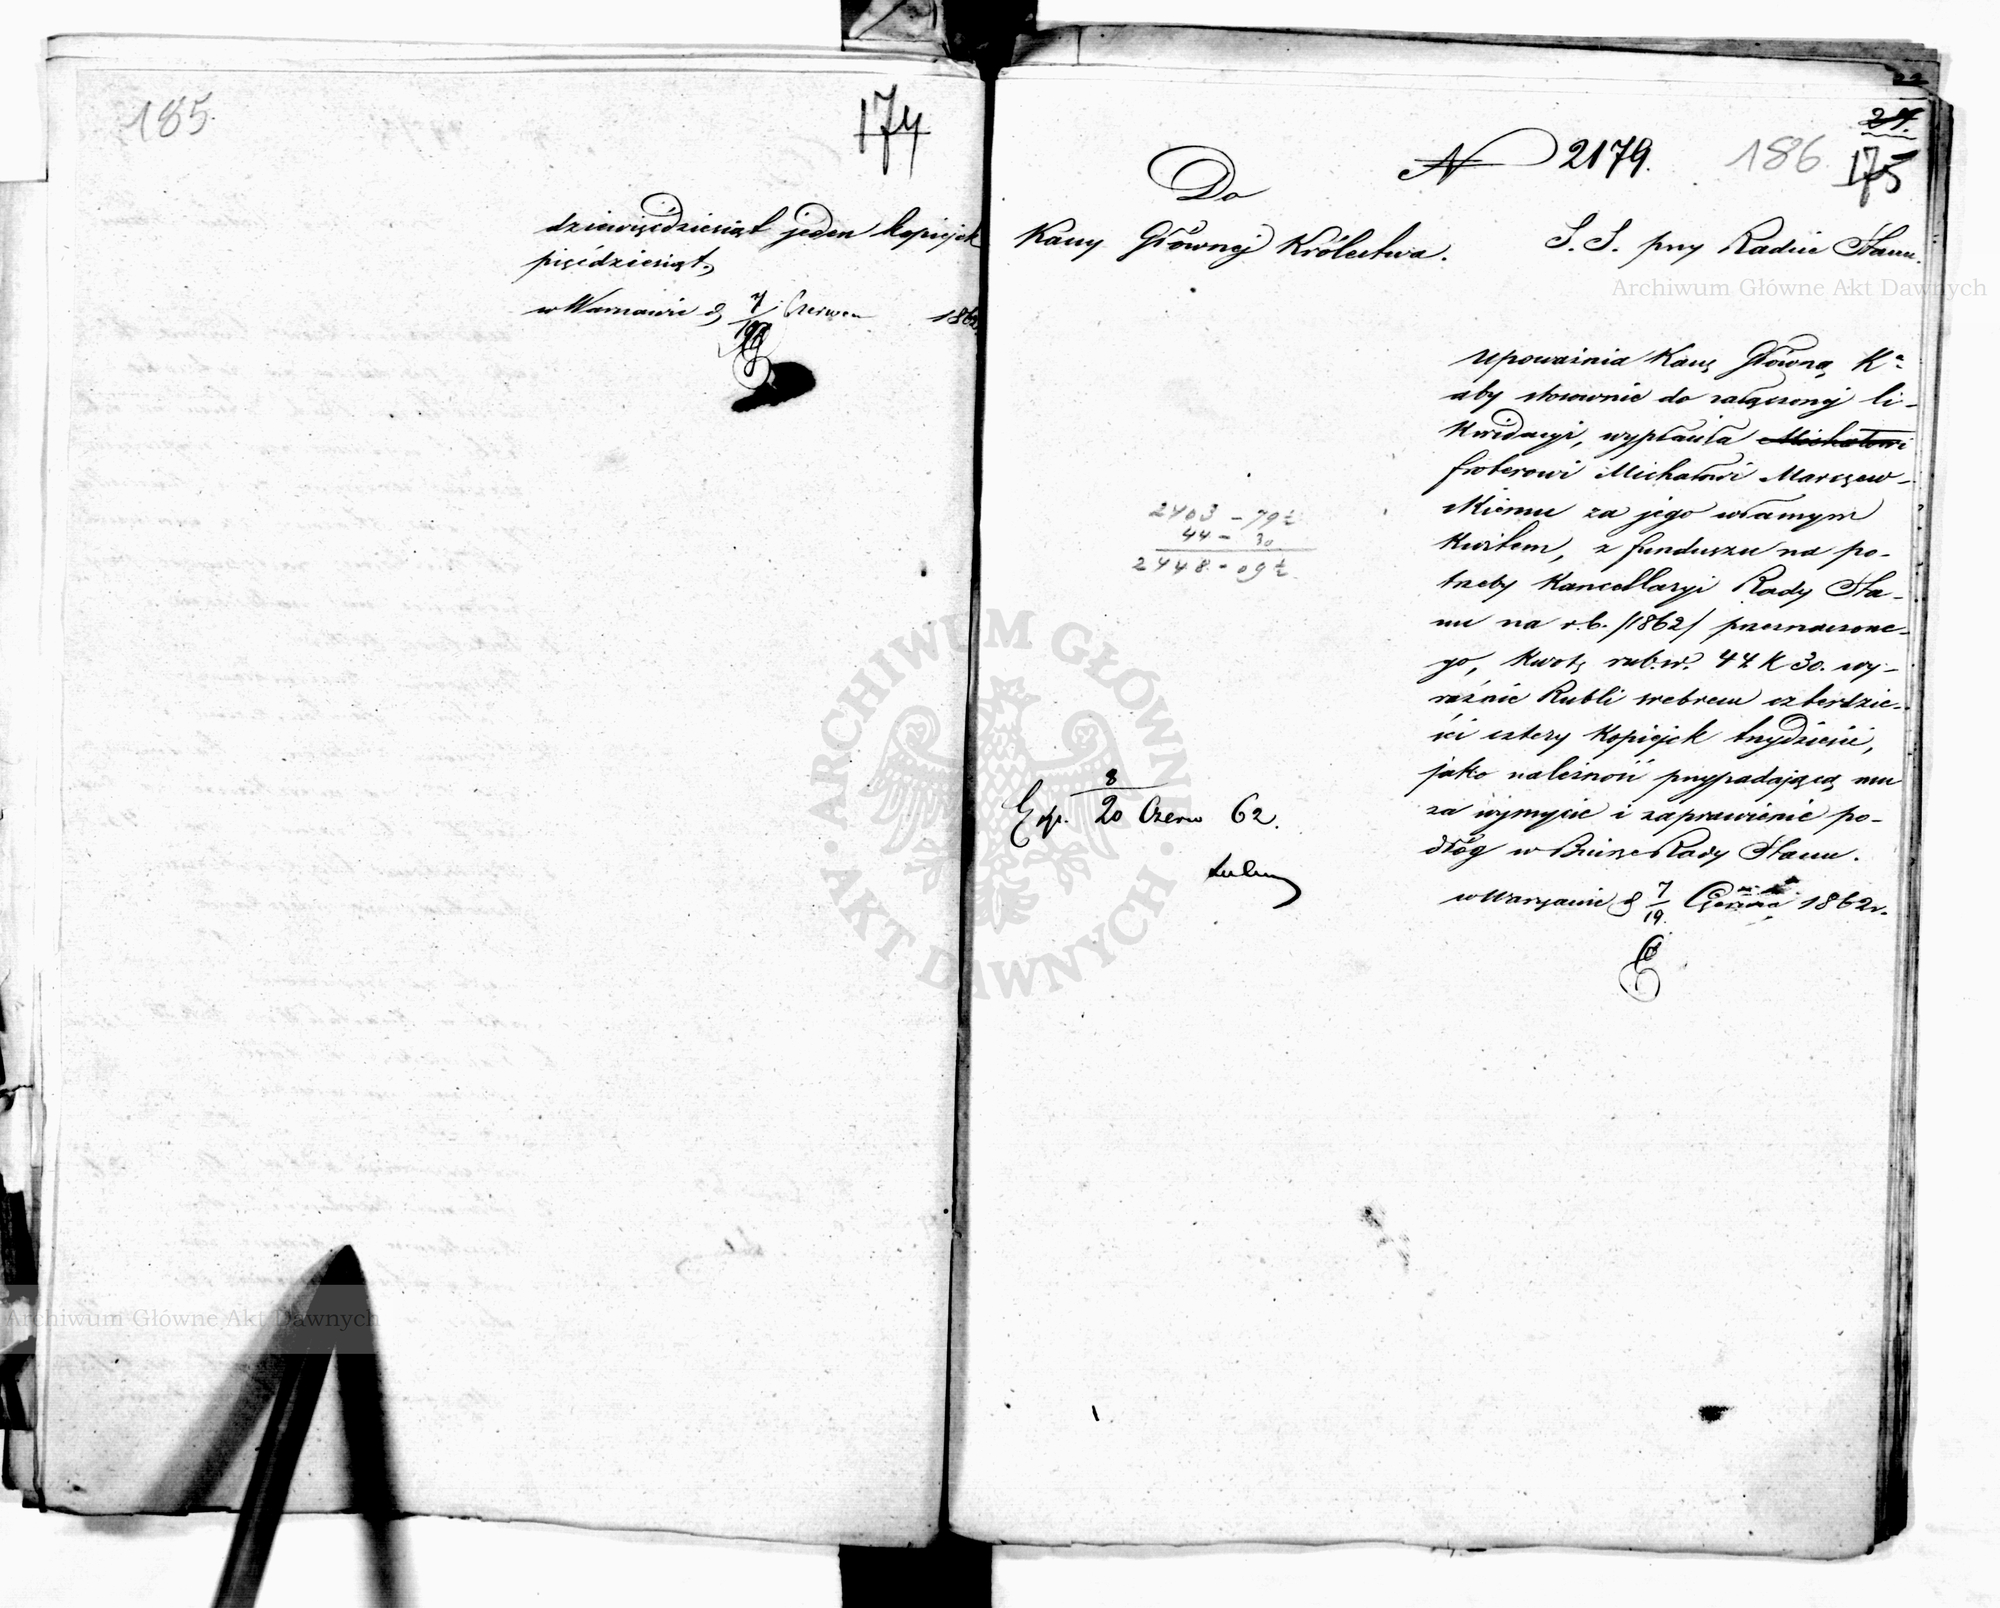 185.
174
dziewięćdziesiąt jeden kopiejek
pięćdziesiąt,
w Warszawie d 7/19 Czerwca 1862
22
27.
No 2179.
186
175
Do
Kassy Głównej Królestwa.
S. S. przy Radzie Stanu.
Upoważnia Kassę Główną Ka
aby stosownie do załączonej li-
kwidacyi, wypłaciła Michałowi
froterowi Michałowi Marszew-
skiemu za jego własnym
kwitem, z funduszu na po-
trzeby Kancellaryi Rady Sta-
nu na r.b. /1862/ przeznaczone-
go, kwotę rub.sr. 44 k 30. wy-
raźnie Rubli srebrem czterdzie-
ści cztery kopiejek trzydzieści,
jako należność przypadającą mu
za wymycie i zaprawienie po-
dłóg w Biurze Rady Stanu.
w Warszawie d 7/19. Czerwca 1862 r.
2403 - 79½
44 - 30
2448 - 09½
Exp. 8/20 Czerw 62.
Archiwum Główne Akt Dawnych
ARCHIWUM GŁÓWNE · AKT DAWNYCH ·
Archiwum Główne Akt Dawnych